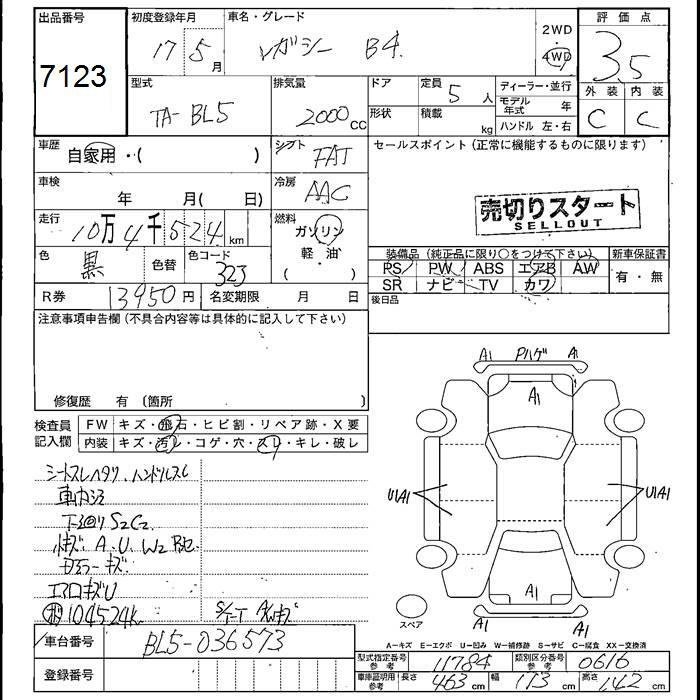 出品番号
7123
初度登録年月
17 5月
車名・グレード
レガシー B4
2WD
4WD
評価点
3.5
外装 内装
C C
型式
TA-BL5
排気量
2000cc
ドア
形状
定員
5人
積載
kg
ディーラー・並行
モデル年式 年
ハンドル 左・右
車歴
自家用・( )
シフト
FAT
セールスポイント(正常に機能するものに限ります)
車検
年 月( 日)
冷房
AAC
売切りスタート
SELLOUT
走行
10万4千524km
燃料
ガソリン
軽・油
( )
色
黒
色替
色コード
323
装備品(純正品に限り○をつけて下さい)
PS PW ABS エアB AW
SR ナビ TV カワ
新車保証書
有・無
R券
13950円
名変期限 月 日
後日品
注意事項申告欄(不具合内容等は具体的に記入して下さい)
修復歴 有(箇所 )
検査員
記入欄
FW キズ・飛石・ヒビ割・リペア跡・X要
内装 キズ・汚レ・コゲ・穴・スレ・キレ・破レ
シートスレヘタリ、ハンドルスレ
下廻りS2C2
小キズ A.U.W2
エアロキズU
104524K
A1 PハゲA1
A1
U1A1
U1A1
A1
A1
スペア
A-キズ E-エクボ U-凹み W-補修跡 S-サビ C-腐食 XX-交換済
車台番号
BL5-036573
登録番号
型式指定番号
参考
11784
類別区分番号
参考
0616
車庫証明用
参考
長さ 463cm
幅 173cm
高さ 142cm